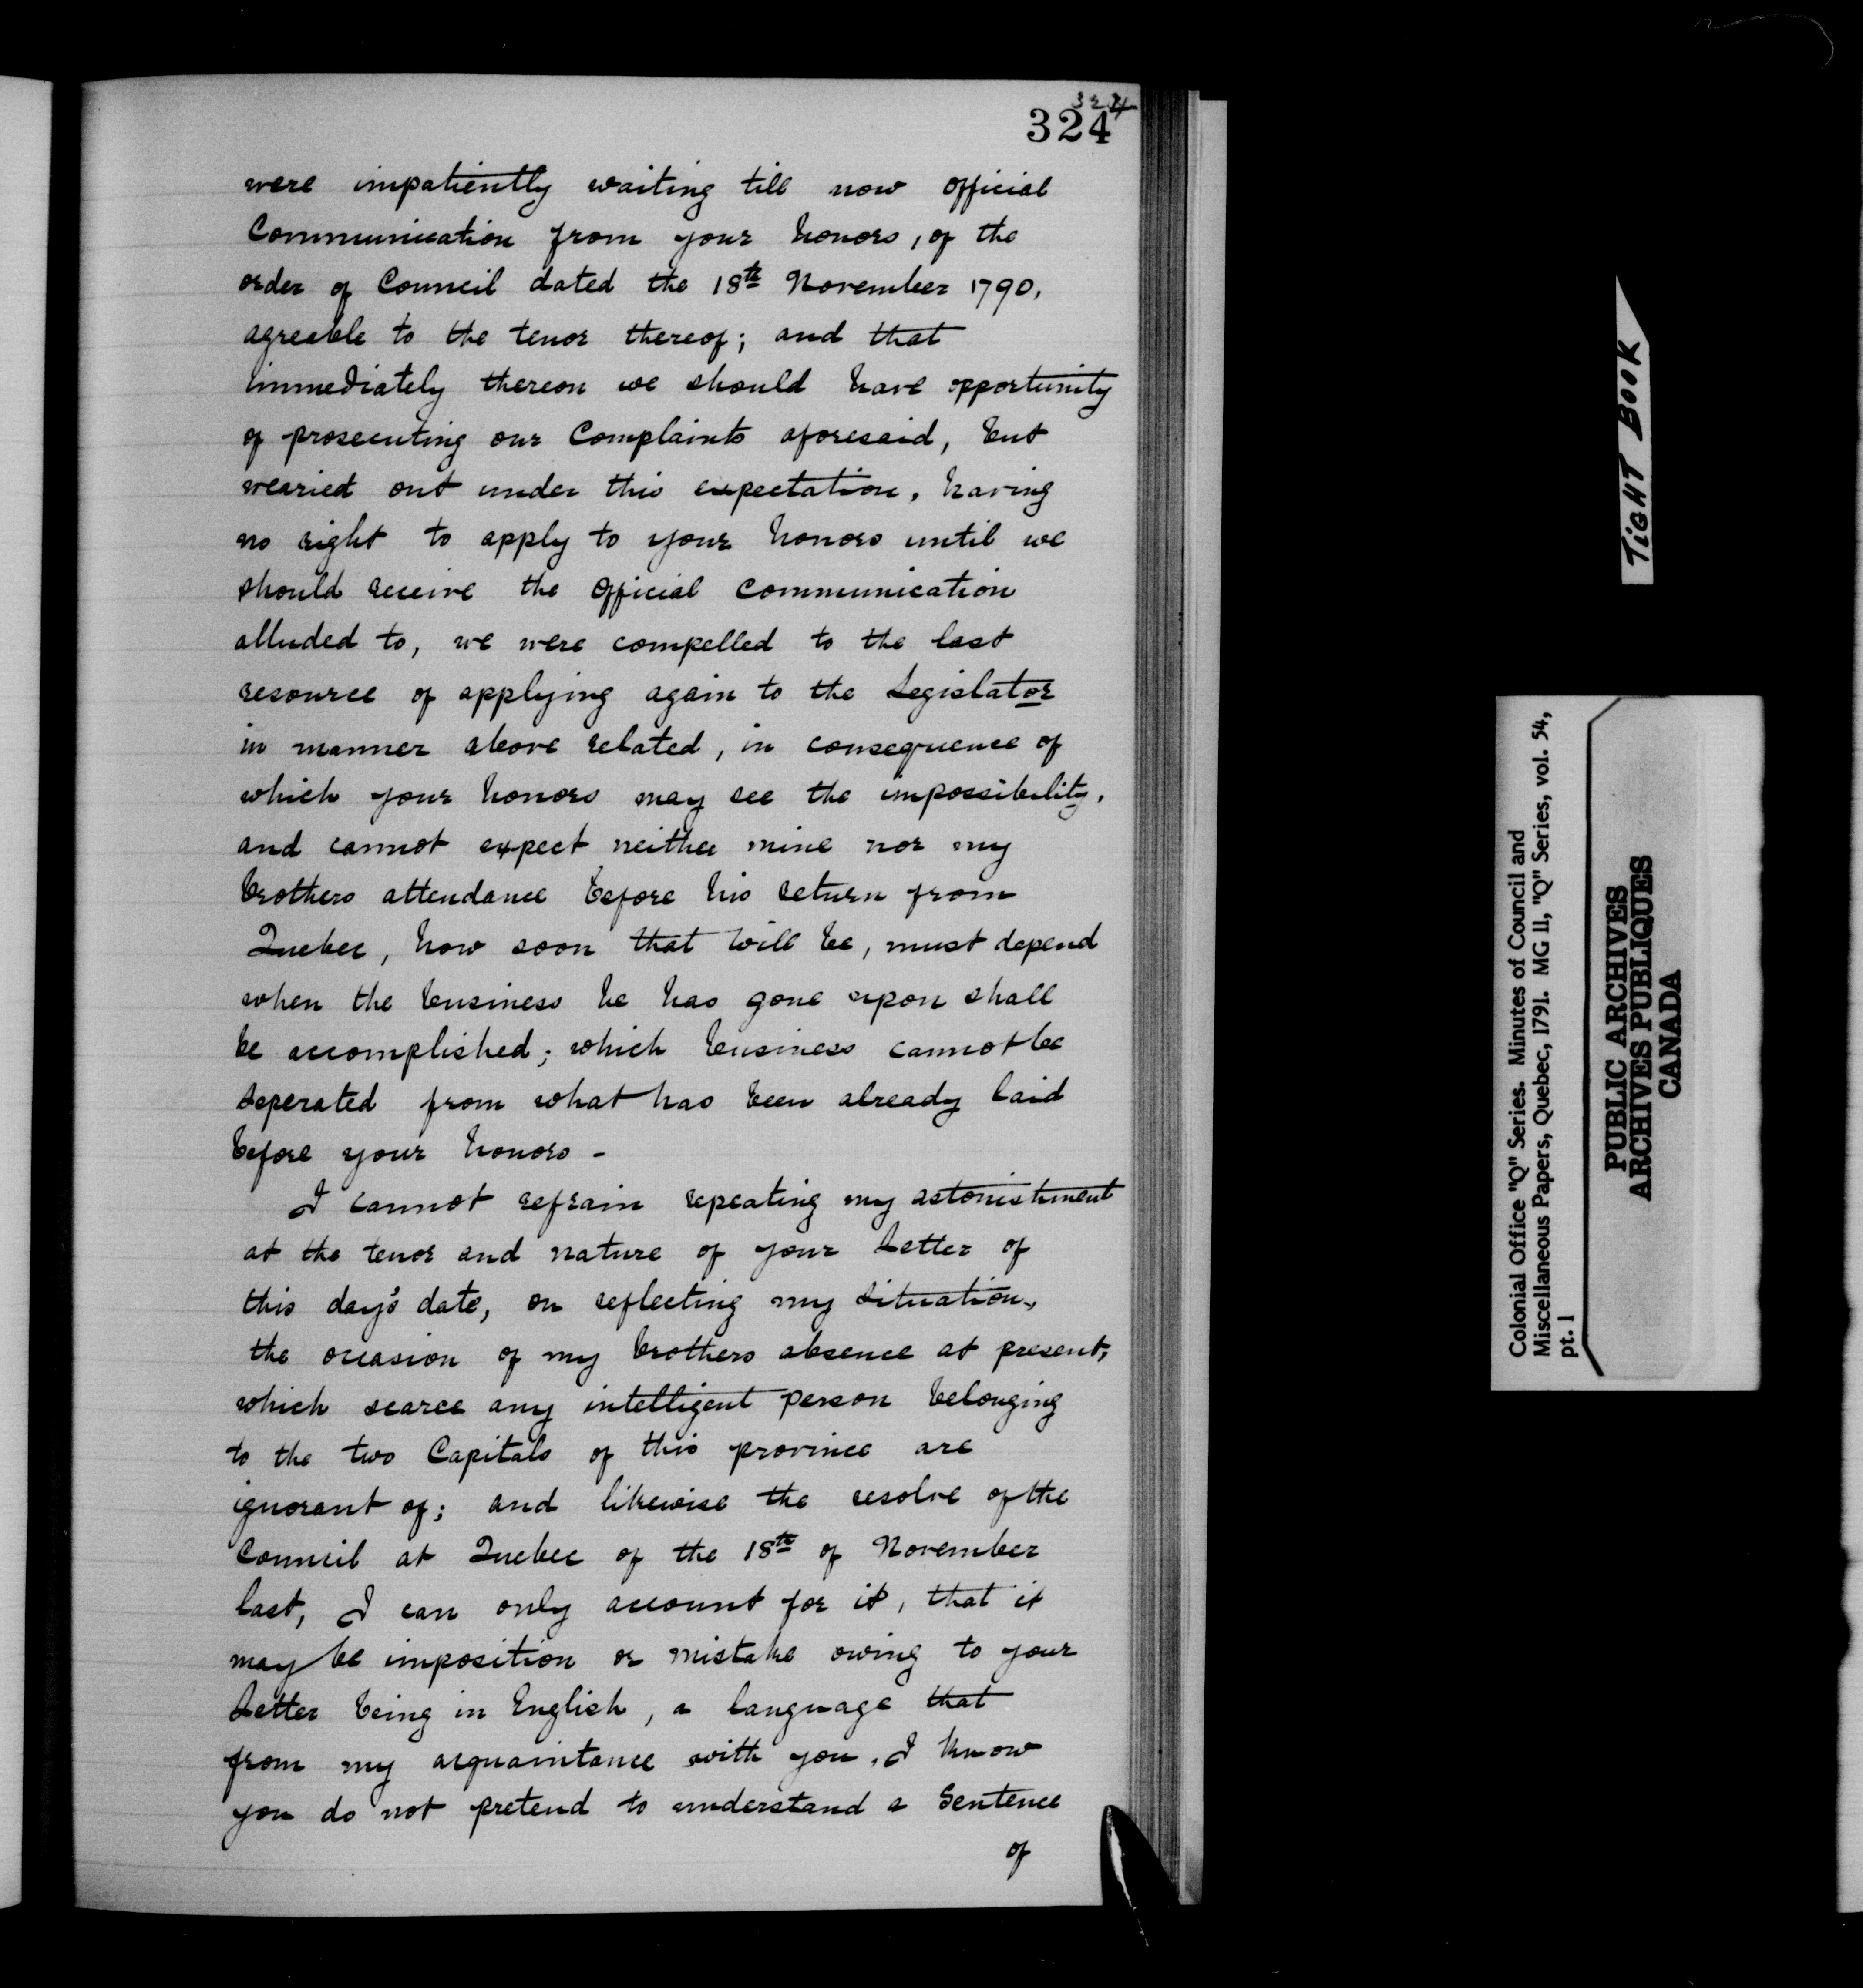 324
324
were impatiently waiting till now official
Communication from your honors, of the
order of Council dated the 18th November 1790,
agreable to the tenor thereof; and that
immediately thereon we should have opportunity
of prosecuting our Complaints aforesaid, but
wearied out under this expectation, having
no right to apply to your honors until we
should receive the Official Communication
alluded to, we were compelled to the last
resource of applying again to the Legislator
in manner above related, in consequence of
which your honors may see the impossibility,
and cannot expect neither mine nor my
brothers attendance before his return from
Quebec, how soon that will be, must depend
when the business he has gone upon shall
be accomplished; which business cannot be
seperated from what has been already laid
before your honors -
I cannot refrain repeating my astonishment
at the tenor and nature of your Letter of
this day's date, on reflecting my situation,
the occasion of my brothers absence at present,
which scarce any intelligent person belonging
to the two Capitals of this province are
ignorant of; and likewise the resolve of the
Council at Quebec of the 18th of November
last, I can only account for it, that it
may be imposition or mistake owing to your
Letter being in English, a language that
from my acquaintance with you, I know
you do not pretend to understand a Sentence
of
TIGHT BOOK
Colonial Office "Q" Series. Minutes of Council and
Miscellaneous Papers, Quebec, 1791. MG 11, "Q" Series, vol. 54,
pt. 1
PUBLIC ARCHIVES
ARCHIVES PUBLIQUES
CANADA